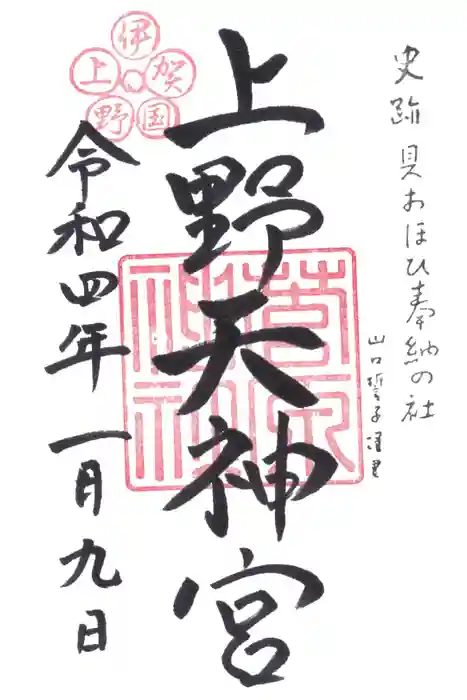 史跡 貝おほひ奉納の社
山口誓子
上野天神宮
菅原
神社
伊賀国上野
令和四年一月九日